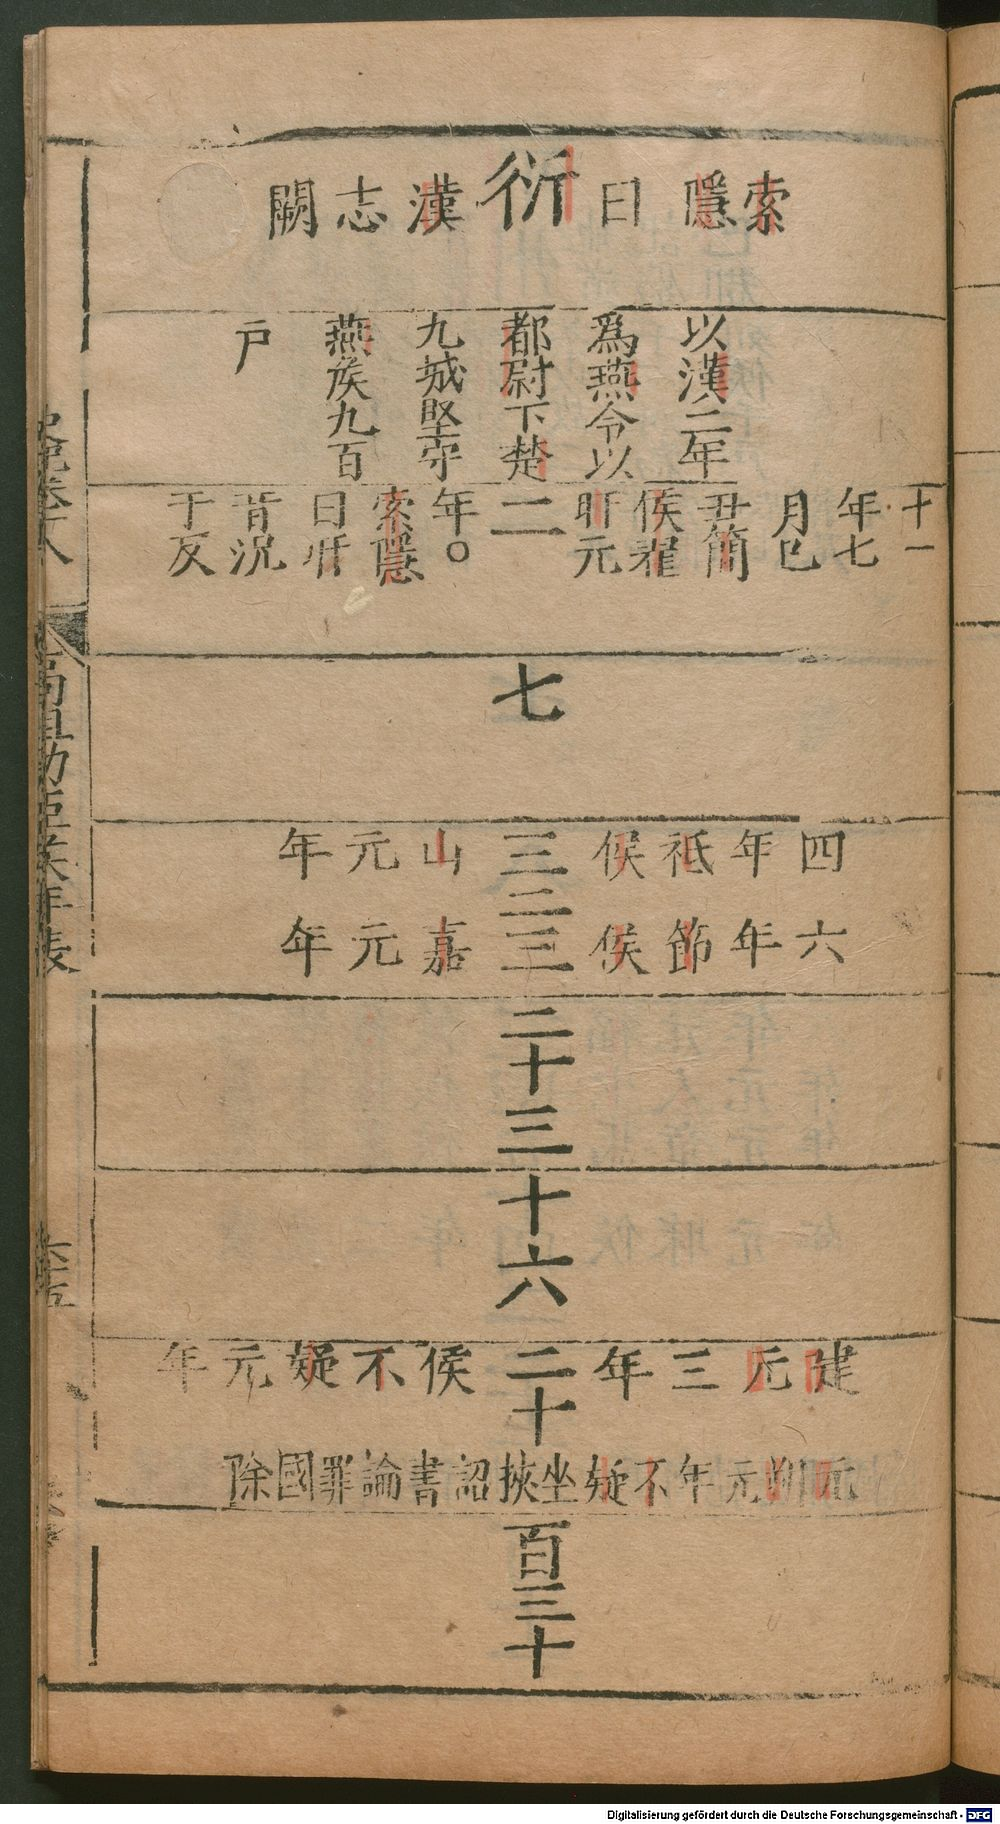 衍
索隱曰漢志闕
以漢二年
爲燕令以
都尉下楚
九城堅守
燕侯九百
戶
十一
年七
月己
丑簡
侯翟
盱元
二
年○
索隱
曰盱
音況
于反
七
四年祗侯
三
山元年
二
六年節侯
三
嘉元年
二十三
十六
建元三年
二十
侯不疑元年
元朔元年不疑坐挾詔書論罪國除
百三十
年表
六十五
Digitalisierung gefördert durch die Deutsche Forschungsgemeinschaft - DFG